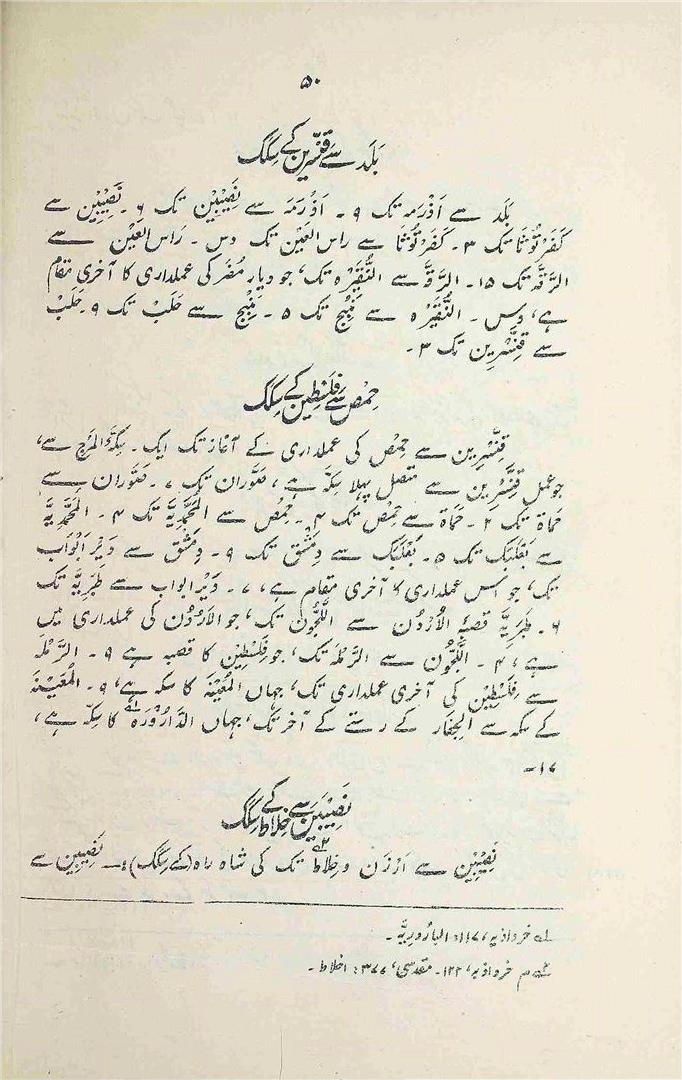 ۵۰
بَلَد سے قِنَّسرِین کے سِکَک
بَلَد سے اَذْرَمہ تک ۹۔ اَذْرَمَہ سے نَصِیْبِیْن تک ۶۔ نَصِیْبِیْن سے
کَفَرْتُوْثَا تک ۳۔ کَفَرْتُوثَا سے راس العَین تک دس۔ رَاس العَیْن سے
الرَّقَّہ تک ۱۵۔ الرَّقَّہ سے النُّقَیْرَہ تک، جو دیارِ مُضَر کی عملداری کا آخری مقام
ہے، دس۔ النُّقَیْرَہ سے مَنْبِج تک ۵۔ مَنْبِج سے حَلَبْ تک ۹۔ حَلَبْ
سے قِنَّسْرِین تک ۳۔
حِمْص سے فِلَسْطِین کے سِکَک
قِنَّسْرِین سے حِمْص کی عملداری کے آغاز تک ایک۔ سِکَّۃُ المَرْج سے،
جو عملِ قِنَّسْرِین سے متصل پہلا سِکَّہ ہے، صَوَّران تک ۷۔ صَوَّران سے
حَمَاۃ تک ۲۔ حَمَاۃ سے حِمْص تک ۴۔ حِمْص سے المُحَمَّدِیَّۃ تک ۴۔ المُحَمَّدِیَّۃ
سے بَعْلَبَک تک ۵۔ بَعْلَبَک سے دِمَشْق تک ۹۔ دِمَشْق سے دَیْرِ اَیُّواب
تک، جو اُس عملداری کا آخری مقام ہے، ۷۔ دَیْر ایواب سے طَبَرِیَّۃ تک
۶۔ طَبَرِیَّۃ قصبۂ الْاُرْدُن سے اللَّجُّون تک، جو الاُرْدُن کی عملداری میں
ہے، ۴۔ اللَّجُّون سے الرَّمْلَہ تک، جو فِلَسْطِیْن کا قصبہ ہے ۹۔ الرَّمْلَہ
سے فِلَسْطِیْن کی آخری عملداری تک، جہاں المُغِیْثَہ کا سکہ ہے، ۹۔ المُغِیْثَہ
کے سکہ سے الجِفَار کے رستے کے آخر تک، جہاں الدَّارُوْرَہ لے کا سِکّہ ہے،
۱۷۔
نَصِیْبِیْن سے خِلَاط کے سِکَک
نَصِیْبِیْن سے اَرْزَن و خِلَاط ۲ تک کی شاہ راہ (کے سِکَک):۔ نَصِیْبِیْن سے
لے خرداذبہ، ۱۱۷: البارُورِیَّہ۔
۲ م خرداذبہ، ۱۲۲۔ مقدسی، ۳۷۷: اخلاط۔